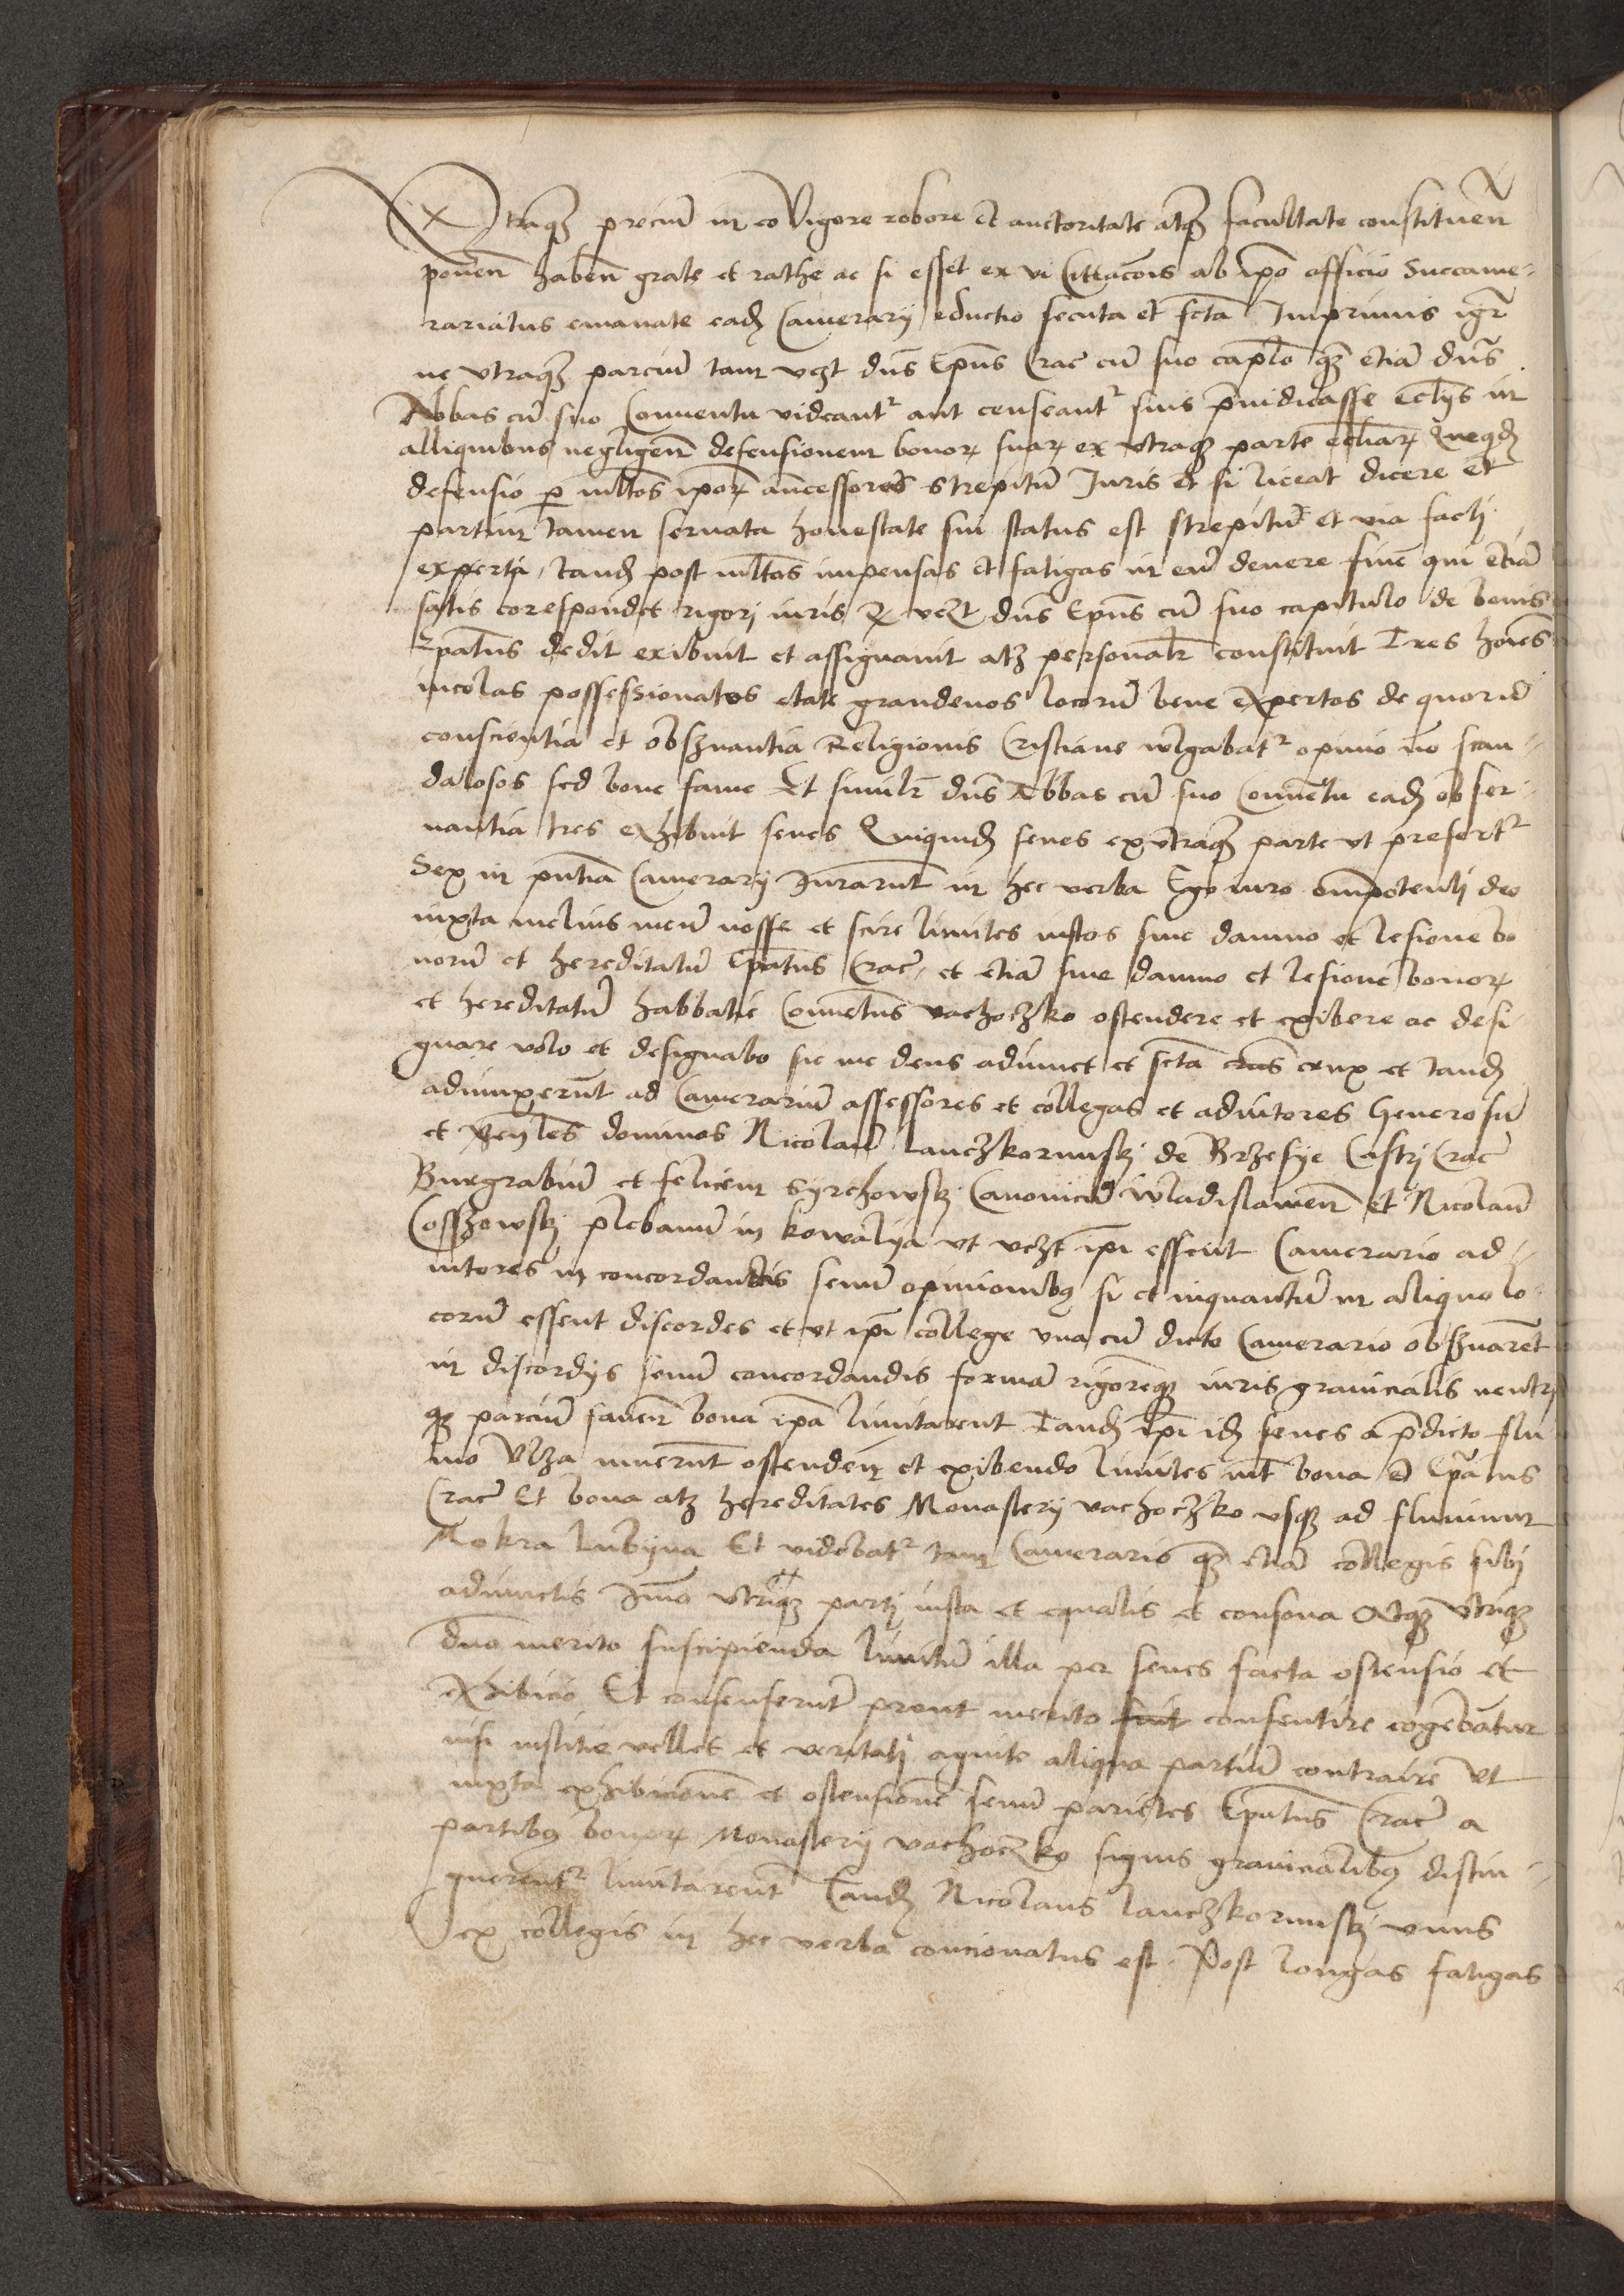 Utraqȝ preciū in eo Vigore robore et auctoritate atqȝ facultate constituen̄
ponen̄ haben̄ grate et rathe ac si esset ex vi Cittacōis ab ipō officio Succame-
rariatus emanate eadȝ Camerarij eductio secuta et sctā Imprimis igr̄
ne vtraqȝ parciū tam vczt dn̄s Epūs Crac̄ cū suo caplō qȝ etiā dn̄s
Abbas cū suo Conuentu videant² aut censeant² suis p̄iudicasse eccl̄ijs in
alliquibus negligen̄ defensionem bonoꝝ suaꝝ ex vtraqȝ parte eccl̄iaꝝ Queqdȝ
defensio p̱ ml̄tos ip̄oꝝ an̄cessores strepitū Iuris et si liceat dicere et
partim tamen seruata honestate sui status est strepitū et via facti
experta, tandȝ post ml̄tas impensas et fatigas in eū devere finē qui etiā
satis corespondet rigori iuris Q vczt dn̄s Epūs cū suo capitulo de bonis
Ep̄atus dedit exibuit et assignauit atȝ personalr̄ constituit Tres hoīes
incolas possessionatos etate grandeuos locorū bene expertos de quorū
conscientia et obsȝuantia Religionis Cristiane wlgabat² opinio nō scan-
dalosos sed bone fame Et similr̄ dn̄s Abbas cū suo Conuētu eadȝ obser-
uantia tres exhibuit senes Quiquidȝ senes ex vtraqȝ parte vt prefert²
Sex in pn̄tia Camerarij Iurarunt in hec verba Ego iuro omīpotenti deo
iuxta melius meū nosse et scire limites iustos sine damno et lesione bo
norū et hereditatū Ep̄atus Crac̄, et etiā sine damno et lesione bonoꝝ
et hereditatū habbatie Conuētus vachoczko ostendere et exibere ac desi
gnare volo et designabo sic me deus adiuuet et sctā crux et tandȝ
adiunxerūt ad Camerariū assessores et collegas et adiutores Generosū
et ven̄les dominos Nicolaū lanczkorunskj de Brzesye Castrj Crac̄
Burgrabiū et felicem Syrchowskj Canonicū wladislauien̄ et Nicolaū
Cosszowskj plebanū in kowalija vt vczt ip̄i essent Camerario ad-
iutores in concordandis senū opinionibȝ si et inquantū in aliquo lo
corū essent discordes et vt ip̄i college vna cū dicto Camerario obsȝuarēt
in discordijs senū concordandis formā rigorēqȝ iuris granicialis neutri
qȝ parciū fauen̄ bona ip̄a limitarent Tandȝ ip̄i idȝ senes a p̄dicto flu
mo Vlza iuuerūt ostenden̄ et exibendo limites int̄ bona Ep̄atus
Crac̄ Et bona atȝ hereditates Monasterij vachoczko vsqȝ ad fluuium
Mokra lubijna Et videbat² tam Camerario qȝ etiā collegis sibj
adiunctis Imo vtriqȝ partj iusta et equalis et consona Atqȝ vtriqȝ
dn̄o merito suscipienda limitū illa per senes facta ostensio et
exhibicio Et consenserunt prout merito consentire cogebātur
nisi iustitie vellet et veritatj agnite aliqua partiū contraire Ut
iuxta exhibicionē et ostensionē senū parietes Ep̄atus Crac̄ a
partibȝ bonoꝝ Monasterij vachoczko signis granicialibȝ distin-
guerent² limitarent Tandȝ Nicolaus lanczkorunskj vnus
ex collegis in hec verba concionatus est. Post longas fatigas